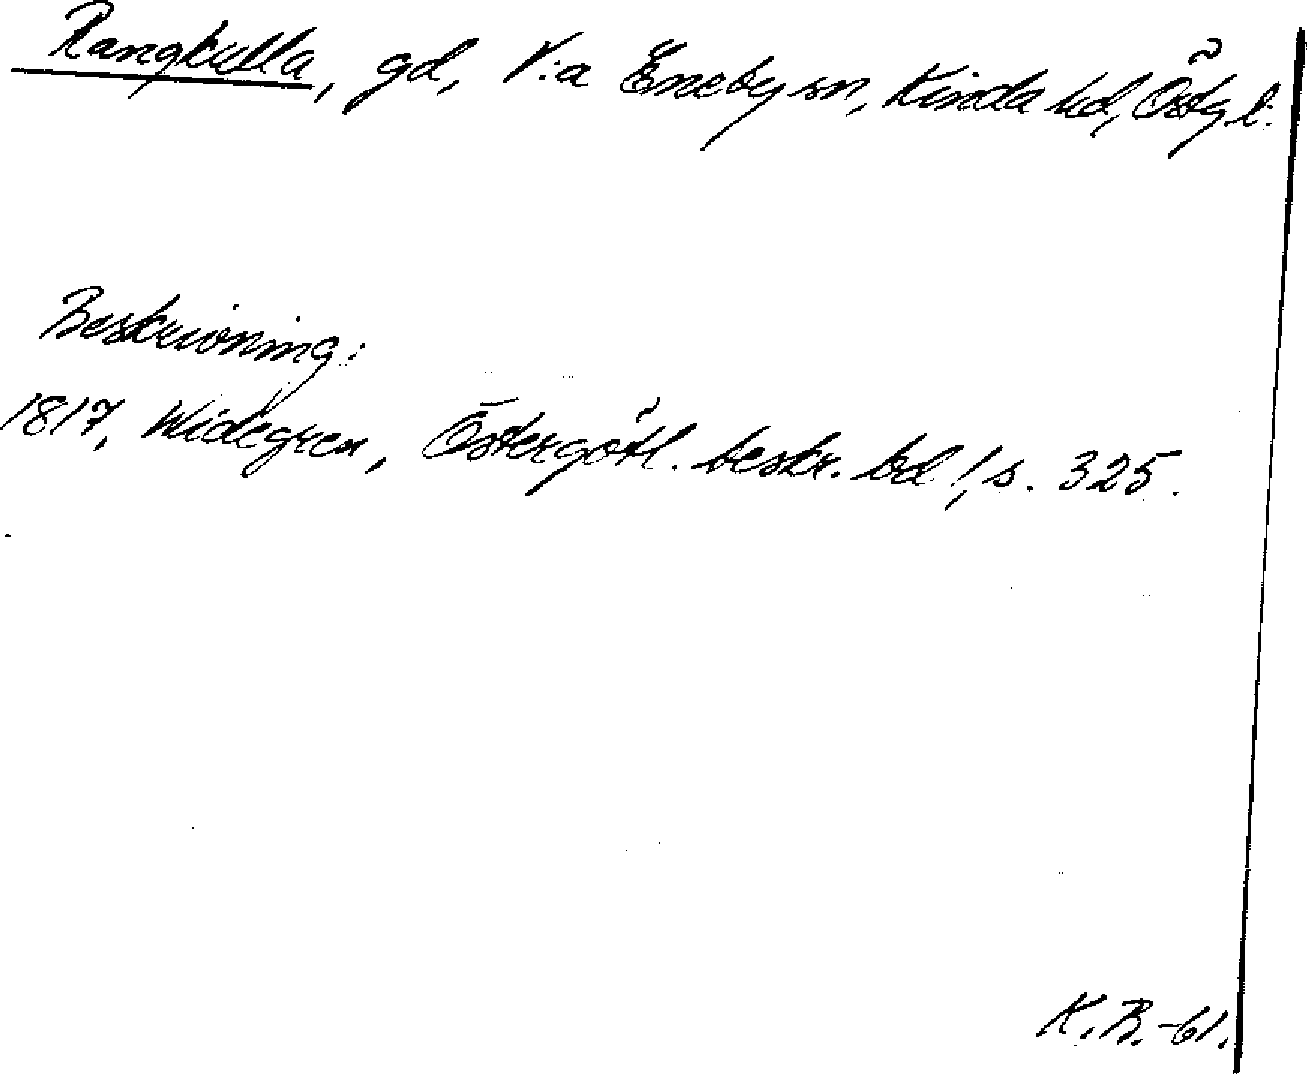 Rangkulla, gd, V:a Eneby sn, Kinda hd, Östg l:
Beskrivning:
1817, Widegren, Östergötl. beskr. bd 1, s. 325.
K.B.-61.